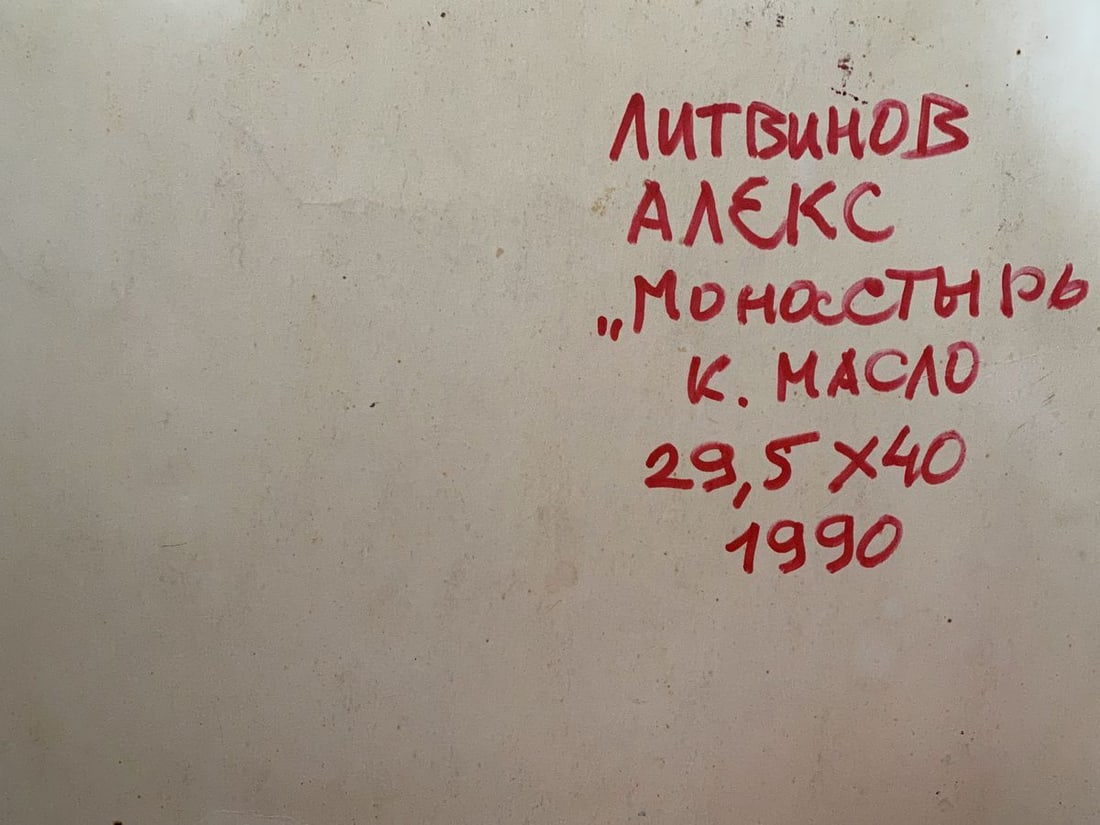 ЛИТВИНОВ
АЛЕКС
„Монастырь
К. МАСЛО
29,5 X40
1990